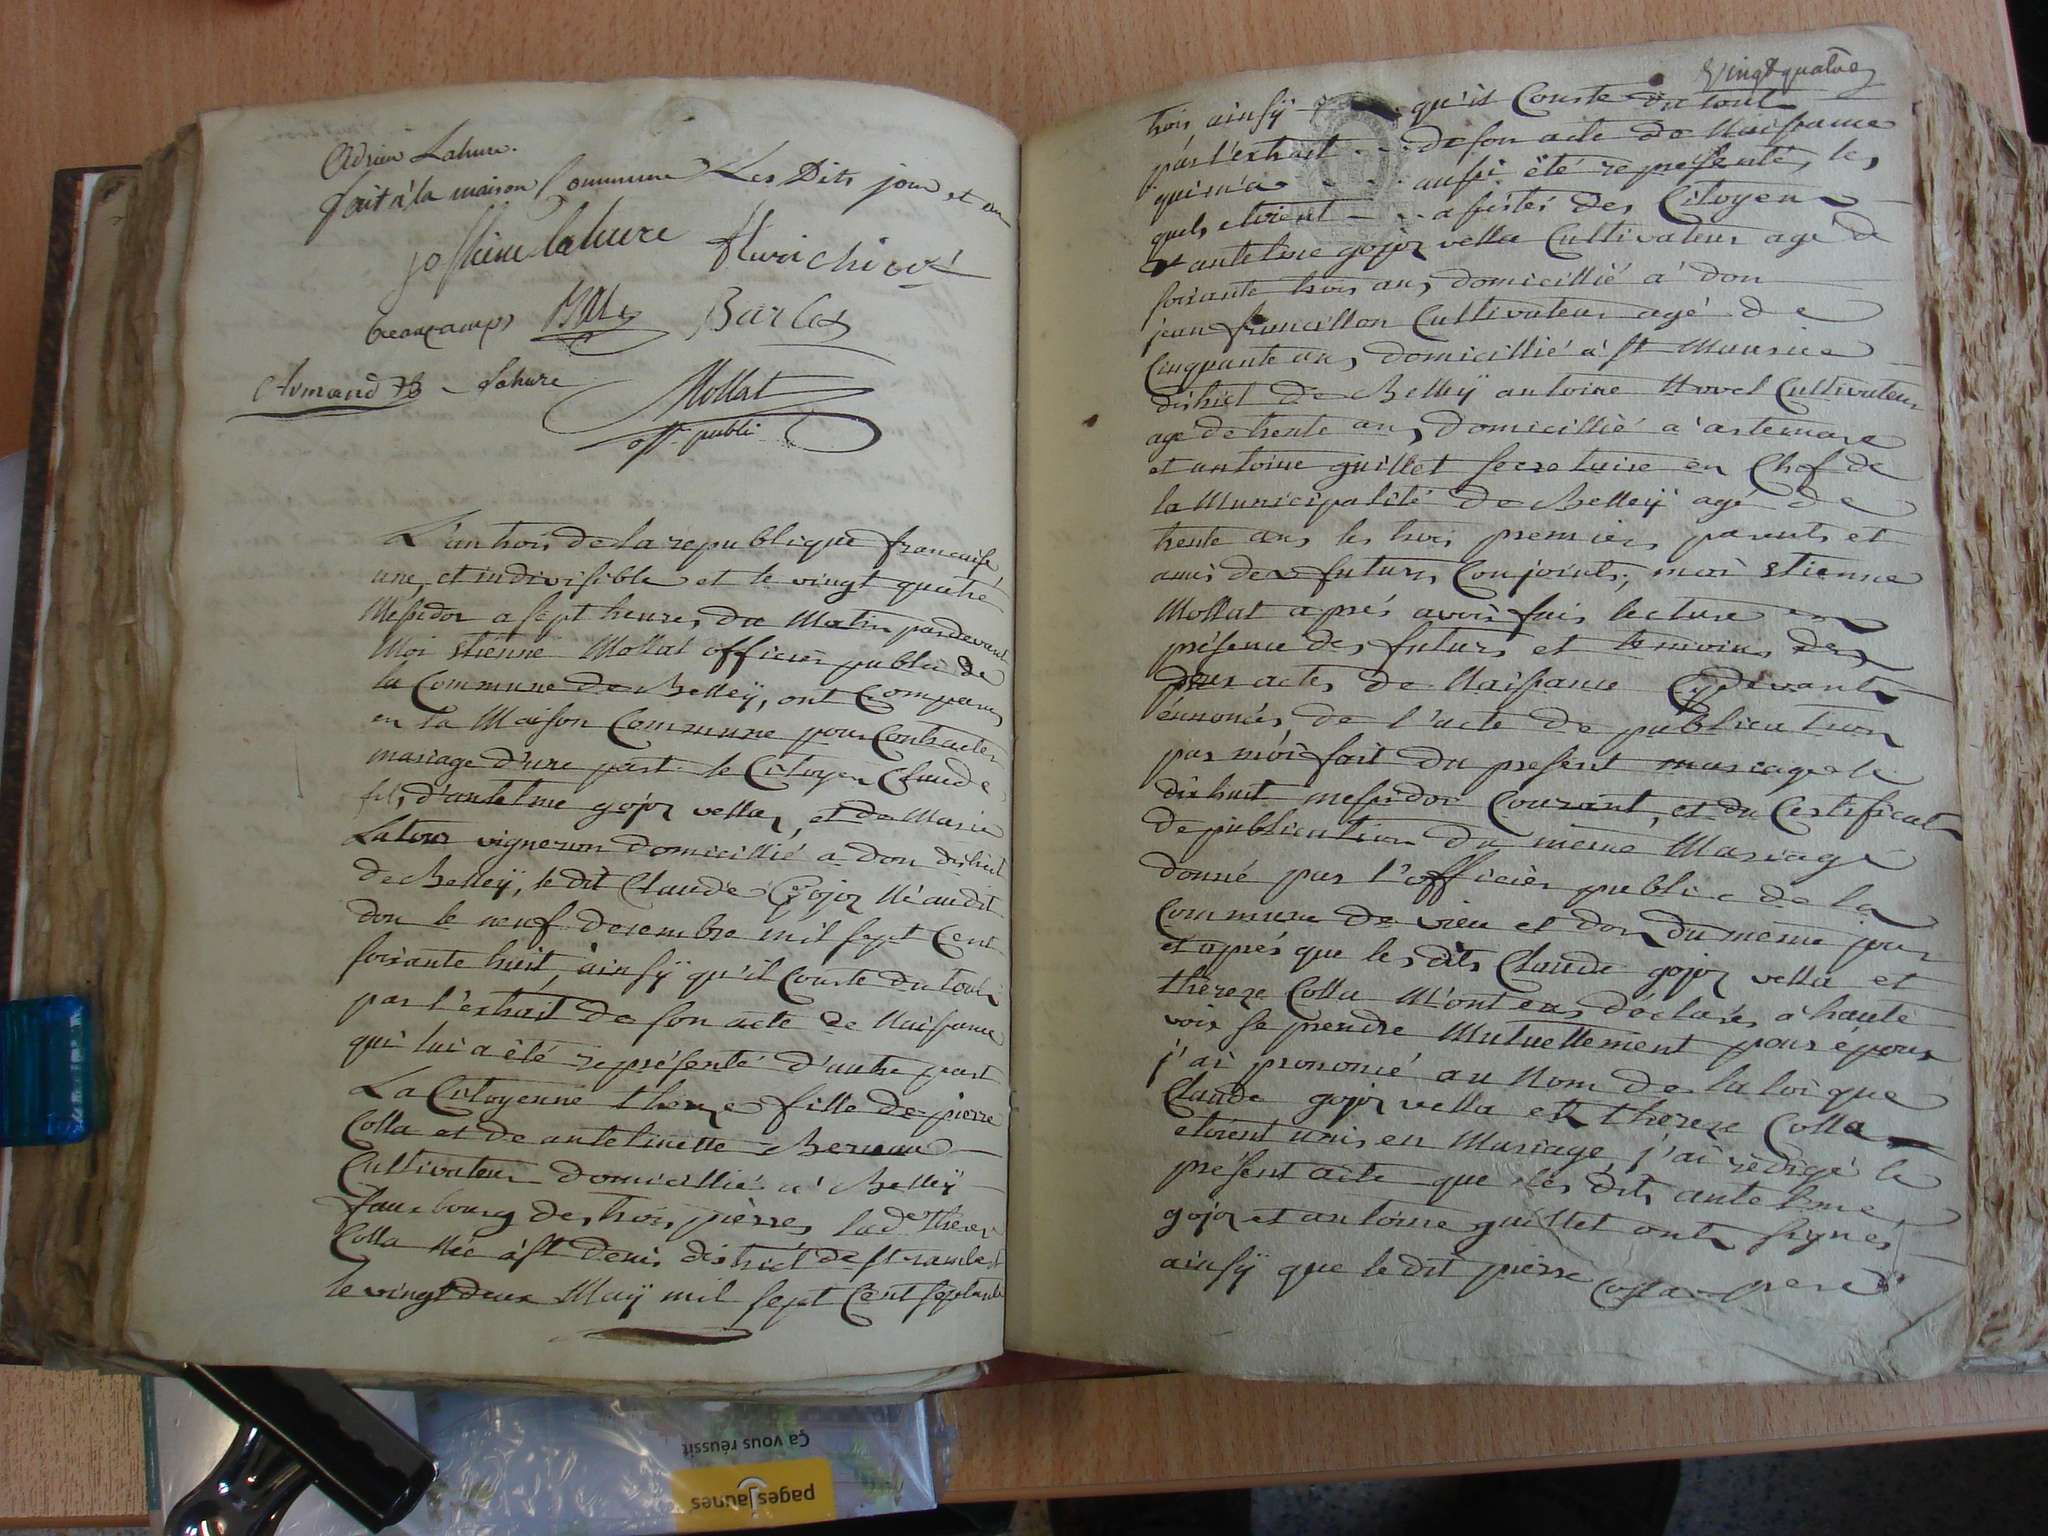 Adrien Lahure.
fait à la maison Commune Les Dits jour et an
josephine lahure
beaucamps Bille Barlet
Armand Lahure
Mollat
off. public
L'an trois de la republique francaise
une, et indivisible et le vingt quatre
Messidor a sept heures du Matin pardevant
Moi Etienne Mollat officier public de
la Commune de Belley, ont Comparus
en la Maison Commune pour Contracter
mariage d'une part le Citoyen Claude
fils d'antelme gojoz vella, et de Marie
Latour vigneron domicillié a don district
de Belleÿ, le dit Claude Gojoz Né audit
don le neuf decembre mil sept Cent
soixante huit, ainsÿ qu'il Conste du tout
par l'extrait de son acte de Naissance
qui lui a été représenté d'autre part
La Citoyenne thereze fille de pierre
Colla et de antelmette
Cultivateur domicillié a Belleÿ
faux bourg des trois pierres lad.e thereze
Colla Née à st denis district de st rambert
le vingt deux Maÿ mil sept Cent septante
vingt quatre
trois, ainsÿ qu'il Conste du tout
par l'extrait de son acte de Naissance
qui m'a aussi été représenté, les
quels etoient assistés des Citoyens
antelme gojoz vella Cultivateur agé de
soixante trois ans, domicillié a don
jean francillon Cultivateur agé de
Cinquante ans, domicillié à st Maurice
district de Belleÿ antoine Cultivateur
agé de trente ans, domicillié a artemare
et antoine guillet secretaire en Chef de
la Municipalité de Belleÿ agé de
trente ans les trois premiers parents et
amis des futurs Conjoints, moi Etienne
Mollat aprés avoir fais lecture en
présence des futurs et temoins des
actes de Naissance Cydevants
énnoncés de l'acte de publication
par moi fait du present mariage le
dix huit messidor Courant, et du Certificat
de publication du même Mariage
donné par l'officier public de la
Commune de vieu et don du même jour
et aprés que les dits Claude gojoz vella et
thereze Colla M'ont eus déclarés à haute
voix se prendre Mutuellement pour époux
j'ai prononcé au Nom de la loi que
Claude gojoz vella et thereze Colla
etoient unis en Mariage, j'ai rédigé le
présent acte que les dits antelme
gojoz et antoine guillet ont signés
ainsÿ que le dit pierre Colla pere
Ça vous réussit
pagesJaunes